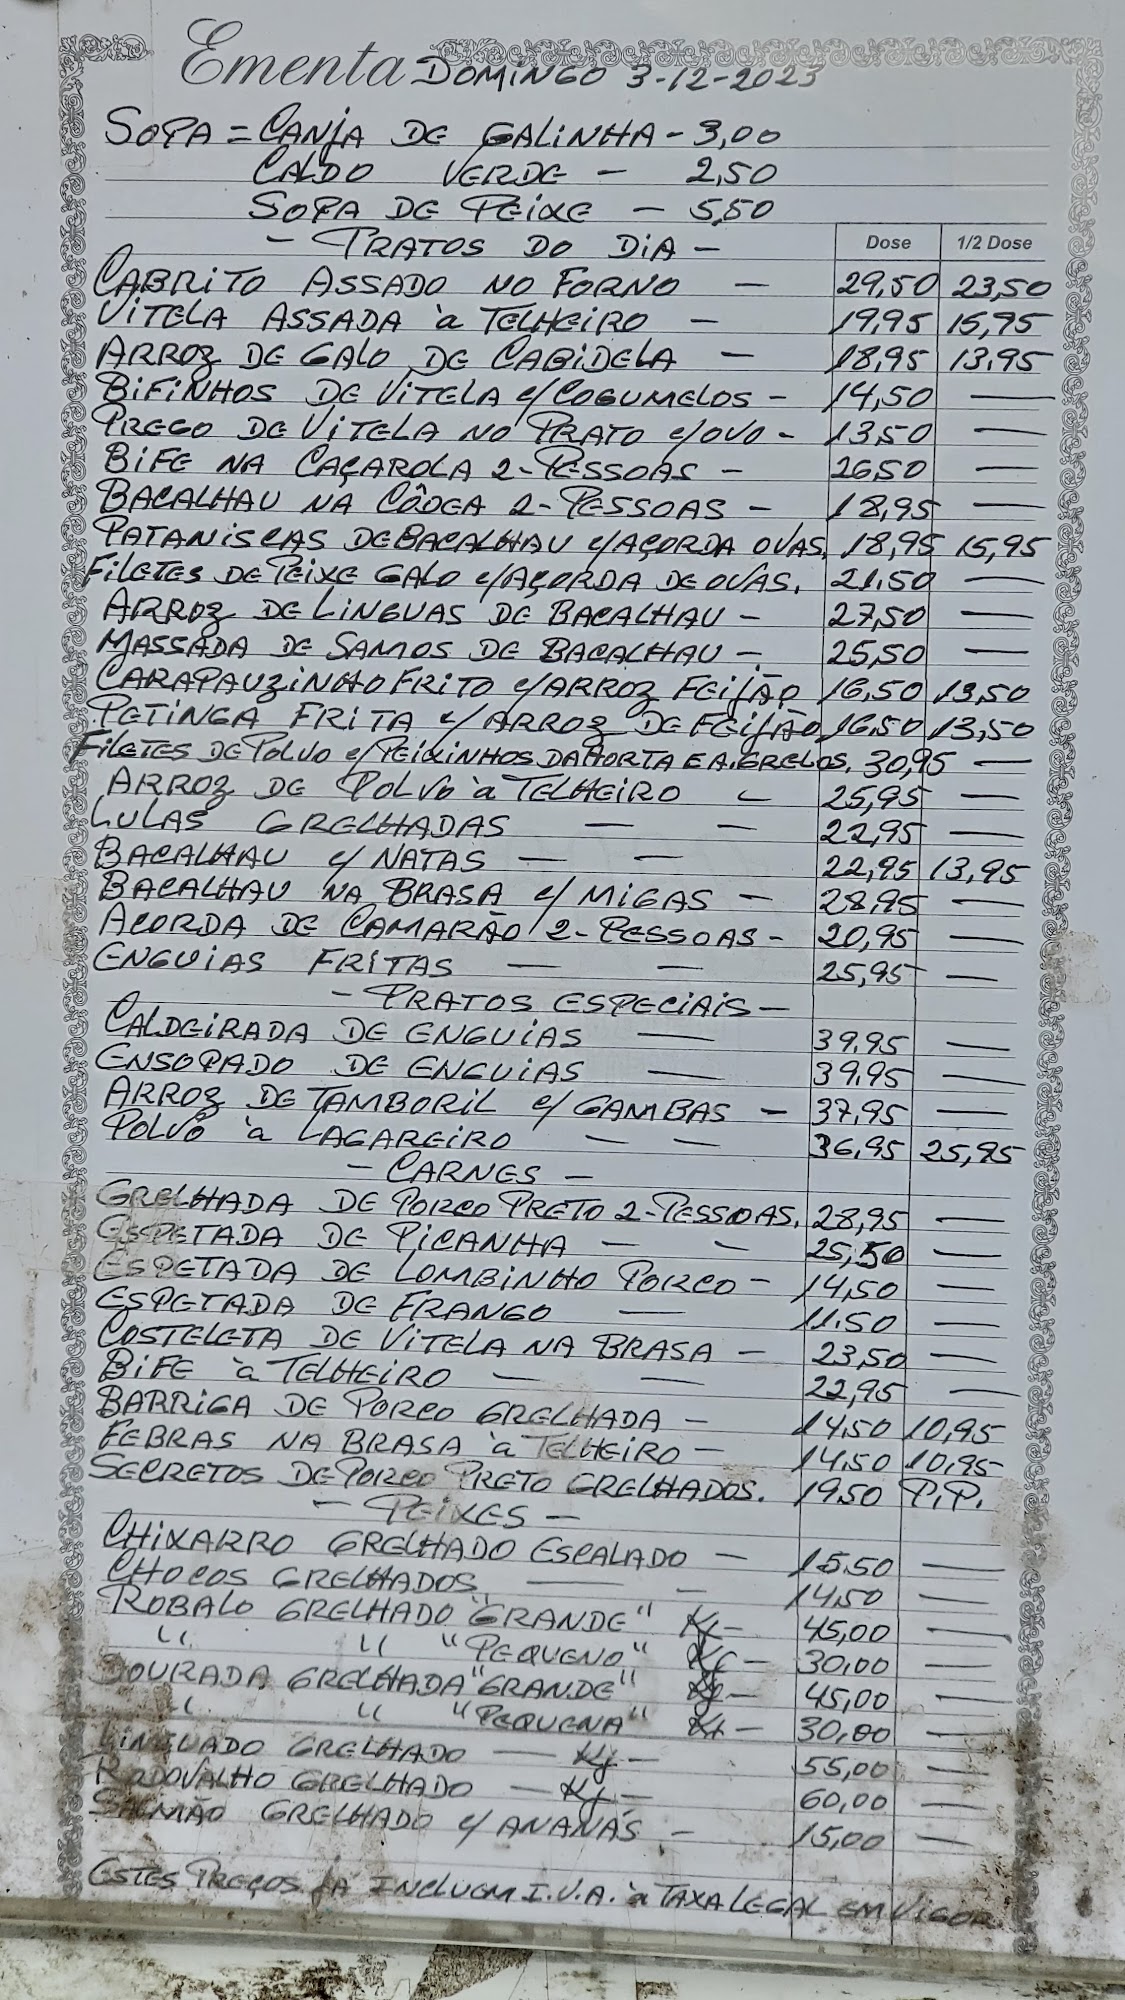 Ementa DOMINGO 3-12-2023
SOPA = CANJA DE GALINHA - 3,00
CALDO VERDE - 2,50
SOPA DE PEIXE - 5,50
- PRATOS DO DIA - Dose 1/2 Dose
CABRITO ASSADO NO FORNO - 29,50 23,50
VITELA ASSADA à TELHEIRO - 19,95 15,95
ARROZ DE GALO DE CABIDELA - 18,95 13,95
BIFINHOS DE VITELA c/COGUMELOS - 14,50 -
PREGO DE VITELA NO PRATO c/OVO - 13,50 -
BIFE NA CAÇAROLA 2-PESSOAS - 26,50 -
BACALHAU NA CÔDEA 2-PESSOAS - 18,95 -
PATANISCAS DE BACALHAU c/AÇORDA OVAS. 18,95 15,95
FILETES DE PEIXE GALO c/AÇORDA DE OVAS. 21,50 -
ARROZ DE LINGUAS DE BACALHAU - 27,50 -
MASSADA DE SAMOS DE BACALHAU - 25,50 -
CARAPAUZINHO FRITO c/ARROZ FEIJÃO 16,50 13,50
PETINGA FRITA c/ARROZ DE FEIJÃO 16,50 13,50
FILETES DE POLVO c/PEIXINHOS DA HORTA E A. GRELOS. 30,95 -
ARROZ DE POLVO à TELHEIRO - 25,95 -
LULAS GRELHADAS - - 22,95 -
BACALHAU c/ NATAS - - 22,95 13,95
BACALHAU NA BRASA c/ MIGAS - 28,95 -
AÇORDA DE CAMARÃO 2-PESSOAS - 20,95 -
ENGUIAS FRITAS - - 25,95 -
- PRATOS ESPECIAIS -
CALDEIRADA DE ENGUIAS - 39,95 -
ENSOPADO DE ENGUIAS - 39,95 -
ARROZ DE TAMBORIL c/ GAMBAS - 37,95 -
POLVO à LAGAREIRO - - 36,95 25,95
- CARNES -
GRELHADA DE PORCO PRETO 2-PESSOAS. 28,95 -
ESPETADA DE PICANHA - - 25,50 -
ESPETADA DE LOMBINHO PORCO - 14,50 -
ESPETADA DE FRANGO - 11,50 -
COSTELETA DE VITELA NA BRASA - 23,50 -
BIFE à TELHEIRO - - 22,95 -
BARRIGA DE PORCO GRELHADA - 14,50 10,95
FEBRAS NA BRASA à TELHEIRO - 14,50 10,95
SECRETOS DE PORCO PRETO GRELHADOS. 19,50 P.P.
- PEIXES -
CHIXARRO GRELHADO ESCALADO - 15,50 -
CHOCOS GRELHADOS - - 14,50 -
ROBALO GRELHADO "GRANDE" Kg - 45,00 -
" " "PEQUENO" Kg - 30,00 -
DOURADA GRELHADA "GRANDE" Kg - 45,00 -
" " "PEQUENA" Kg - 30,00 -
LINGUADO GRELHADO - Kg - 55,00 -
RODOVALHO GRELHADO - Kg - 60,00 -
SALMÃO GRELHADO c/ ANANÁS - 15,00 -
ESTES PREÇOS JÁ INCLUEM I.V.A. à TAXA LEGAL EM VIGOR